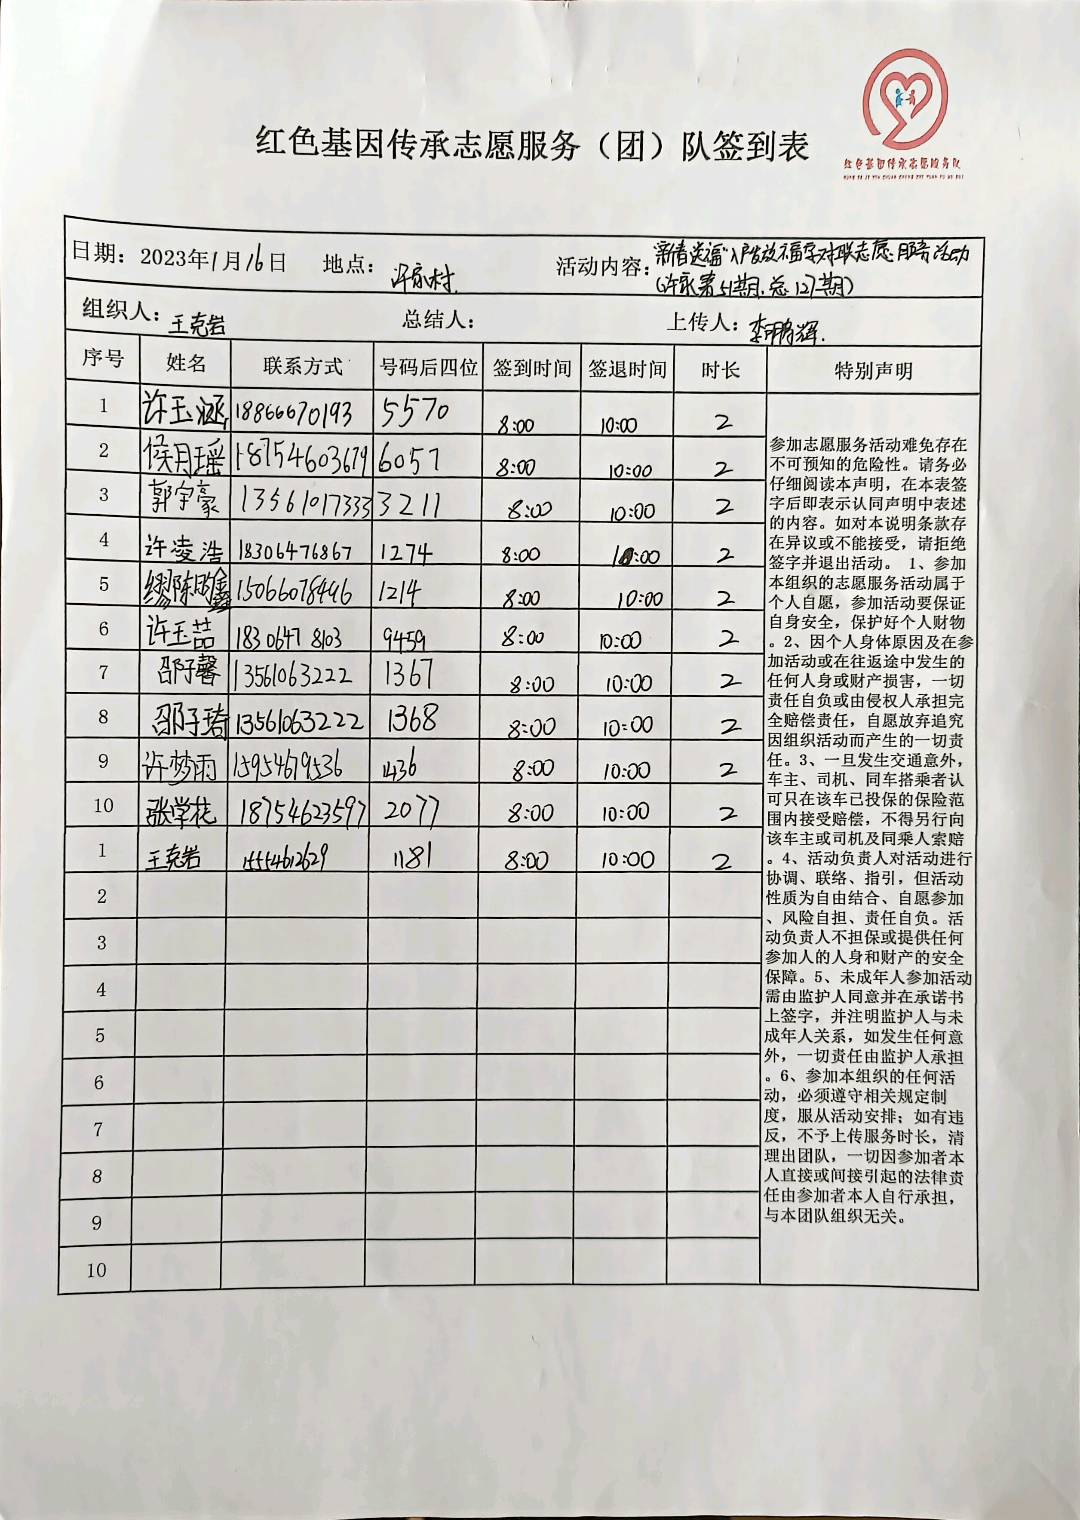 红色基因传承志愿服务（团）队签到表
红色基因传承志愿服务队
日期：2023年1月16日 地点：许家村 活动内容："新春送福"入户发放福字对联志愿服务活动
（许家第51期.总127期）
组织人：王克岩 总结人： 上传人：李鹏辉.
序号 姓名 联系方式 号码后四位 签到时间 签退时间 时长 特别声明
1 许玉涵 18866670193 5570 8:00 10:00 2
2 侯月瑶 18754603679 6057 8:00 10:00 2
3 郭宇豪 13561017333 3211 8:00 10:00 2
4 许凌浩 18306476867 1274 8:00 10:00 2
5 缪陈 15066078496 1214 8:00 10:00 2
6 许玉喆 18306478103 9459 8:00 10:00 2
7 邵子馨 13561063222 1367 8:00 10:00 2
8 邵子琦 13561063222 1368 8:00 10:00 2
9 许梦雨 15954679536 1436 8:00 10:00 2
10 张学花 18754623597 2077 8:00 10:00 2
1 王克岩 15554612629 1181 8:00 10:00 2
2
3
4
5
6
7
8
9
10
参加志愿服务活动难免存在
不可预知的危险性。请务必
仔细阅读本声明，在本表签
字后即表示认同声明中表述
的内容。如对本说明条款存
在异议或不能接受，请拒绝
签字并退出活动。 1、参加
本组织的志愿服务活动属于
个人自愿，参加活动要保证
自身安全，保护好个人财物
。2、因个人身体原因及在参
加活动或在往返途中发生的
任何人身或财产损害，一切
责任自负或由侵权人承担完
全赔偿责任，自愿放弃追究
因组织活动而产生的一切责
任。3、一旦发生交通意外，
车主、司机、同车搭乘者认
可只在该车已投保的保险范
围内接受赔偿，不得另行向
该车主或司机及同乘人索赔
。4、活动负责人对活动进行
协调、联络、指引，但活动
性质为自由结合、自愿参加
、风险自担、责任自负。活
动负责人不担保或提供任何
参加人的人身和财产的安全
保障。5、未成年人参加活动
需由监护人同意并在承诺书
上签字，并注明监护人与未
成年人关系，如发生任何意
外，一切责任由监护人承担
。6、参加本组织的任何活
动，必须遵守相关规定制
度，服从活动安排；如有违
反，不予上传服务时长，清
理出团队，一切因参加者本
人直接或间接引起的法律责
任由参加者本人自行承担，
与本团队组织无关。